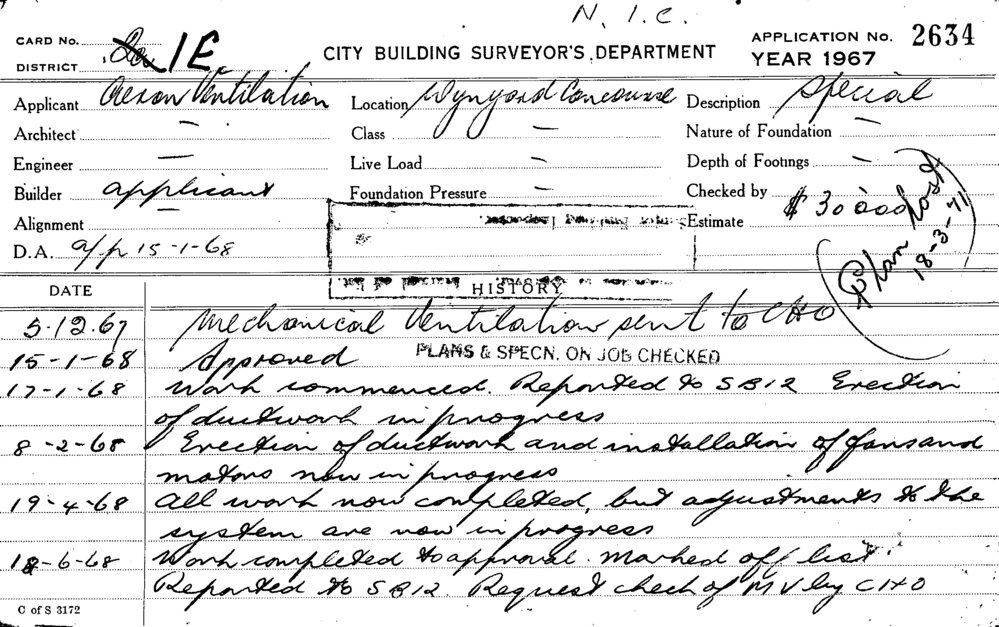 N. I. C.
CARD No. IE
DISTRICT
CITY BUILDING SURVEYOR'S DEPARTMENT
APPLICATION No. 2634
YEAR 1967
Applicant Aeron Ventilation Location Wynyard Concourse Description Special
Architect — Class — Nature of Foundation —
Engineer — Live Load — Depth of Footings —
Builder applicant Foundation Pressure — Checked by
Alignment — Estimate $30000
D.A. app 15-1-68
Plan lost
18-3-71
DATE HISTORY
5.12.67 Mechanical Ventilation sent to CHO
15-1-68 Approved PLANS & SPECN. ON JOB CHECKED
17-1-68 Work commenced. Reported to SB12 Erection
of ductwork in progress
8-2-68 Erection of ductwork and installation of fans and
motors now in progress
19-4-68 All work now completed, but adjustments to the
system are now in progress
18-6-68 Work completed to approval. Marked off list.
Reported to SB12. Request check of MV by CHO
C of S 3172